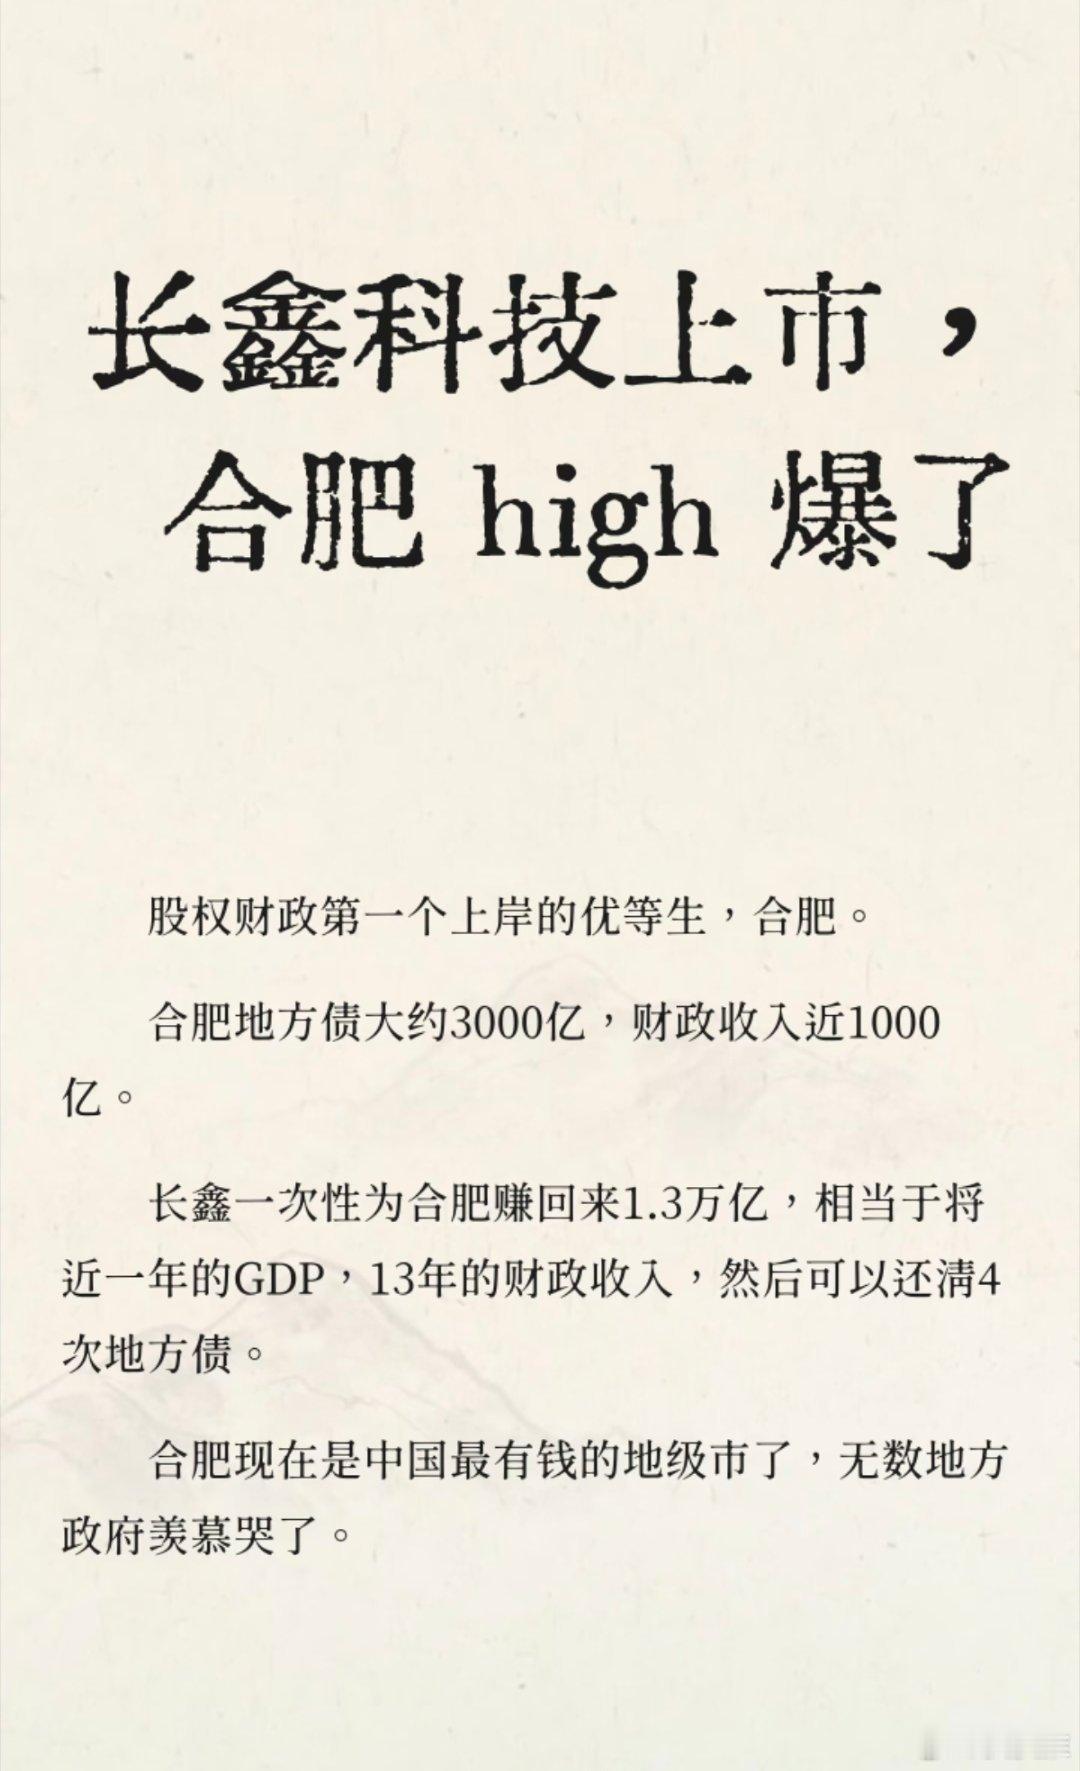 长鑫科技上市，
合肥 high 爆了
股权财政第一个上岸的优等生，合肥。
合肥地方债大约3000亿，财政收入近1000
亿。
长鑫一次性为合肥赚回来1.3万亿，相当于将
近一年的GDP，13年的财政收入，然后可以还清4
次地方债。
合肥现在是中国最有钱的地级市了，无数地方
政府羡慕哭了。